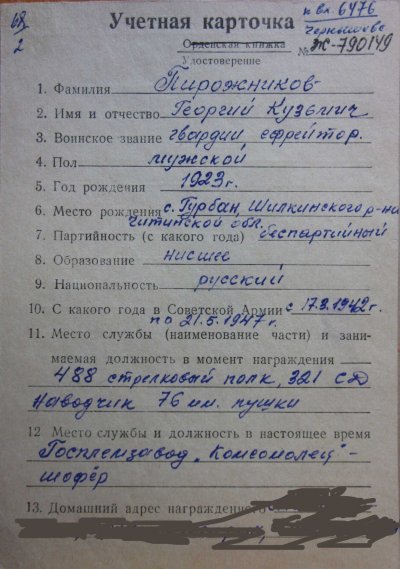 68/2
к вл. 6476
Чернышева
Учетная карточка
Орденская книжка № Ж-790149
Удостоверение
1. Фамилия Пирожников
2. Имя и отчество Георгий Кузьмич
3. Воинское звание гвардии ефрейтор.
4. Пол мужской
5. Год рождения 1923 г.
6. Место рождения с. Гурбан, Шилкинского р-на
Читинской обл.
7. Партийность (с какого года) беспартийный
8. Образование низшее
9. Национальность русский
10. С какого года в Советской Армии с 17.3.1942 г.
по 21.5.1947 г.
11. Место службы (наименование части) и зани-
маемая должность в момент награждения
488 стрелковый полк, 321 СД
наводчик 76 мм. пушки
12 Место службы и должность в настоящее время
Госплемзавод „Комсомолец" -
шофёр
13. Домашний адрес награжденного